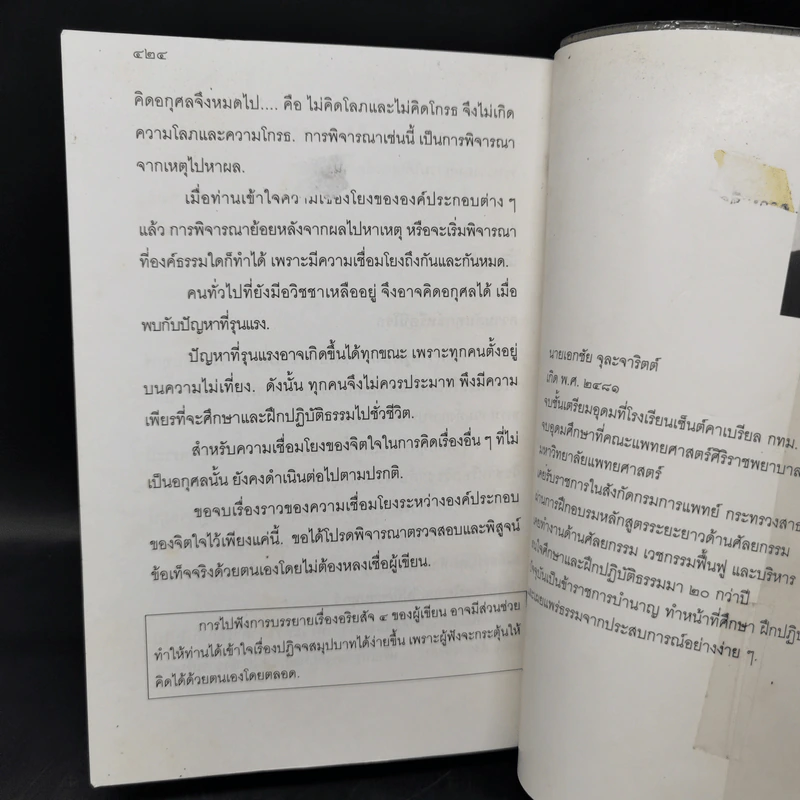 ๔๒๔
คิดอกุศลจึงหมดไป.... คือ ไม่คิดโลภและไม่คิดโกรธ จึงไม่เกิด
ความโลภและความโกรธ. การพิจารณาเช่นนี้ เป็นการพิจารณา
จากเหตุไปหาผล.
เมื่อท่านเข้าใจความเชื่อมโยงขององค์ประกอบต่าง ๆ
แล้ว การพิจารณาย้อยหลังจากผลไปหาเหตุ หรือจะเริ่มพิจารณา
ที่องค์ธรรมใดก็ทำได้ เพราะมีความเชื่อมโยงถึงกันและกันหมด.
คนทั่วไปที่ยังมีอวิชชาเหลืออยู่ จึงอาจคิดอกุศลได้ เมื่อ
พบกับปัญหาที่รุนแรง.
ปัญหาที่รุนแรงอาจเกิดขึ้นได้ทุกขณะ เพราะทุกคนตั้งอยู่
บนความไม่เที่ยง. ดังนั้น ทุกคนจึงไม่ควรประมาท พึงมีความ
เพียรที่จะศึกษาและฝึกปฏิบัติธรรมไปชั่วชีวิต.
สำหรับความเชื่อมโยงของจิตใจในการคิดเรื่องอื่น ๆ ที่ไม่
เป็นอกุศลนั้น ยังคงดำเนินต่อไปตามปรกติ.
ขอจบเรื่องราวของความเชื่อมโยงระหว่างองค์ประกอบ
ของจิตใจไว้เพียงแค่นี้. ขอได้โปรดพิจารณาตรวจสอบและพิสูจน์
ข้อเท็จจริงด้วยตนเองโดยไม่ต้องหลงเชื่อผู้เขียน.
การไปฟังการบรรยายเรื่องอริยสัจ ๔ ของผู้เขียน อาจมีส่วนช่วย
ทำให้ท่านได้เข้าใจเรื่องปฏิจจสมุปบาทได้ง่ายขึ้น เพราะผู้ฟังจะกระตุ้นให้
คิดได้ด้วยตนเองโดยตลอด.
นายเอกชัย จุละจาริตต์
เกิด พ.ศ. ๒๔๘๑
จบชั้นเตรียมอุดมที่โรงเรียนเซ็นต์คาเบรียล กทม.
จบอุดมศึกษาที่คณะแพทยศาสตร์ศิริราชพยาบาล
มหาวิทยาลัยแพทยศาสตร์
เคยรับราชการในสังกัดกรมการแพทย์ กระทรวงสาธ
ผ่านการฝึกอบรมหลักสูตรระยะยาวด้านศัลยกรรม
เคยทำงานด้านศัลยกรรม เวชกรรมฟื้นฟู และบริหาร
สนใจศึกษาและฝึกปฏิบัติธรรมมา ๒๐ กว่าปี
ปัจจุบันเป็นข้าราชการบำนาญ ทำหน้าที่ศึกษา ฝึกปฏิบั
และเผยแพร่ธรรมจากประสบการณ์อย่างง่าย ๆ.